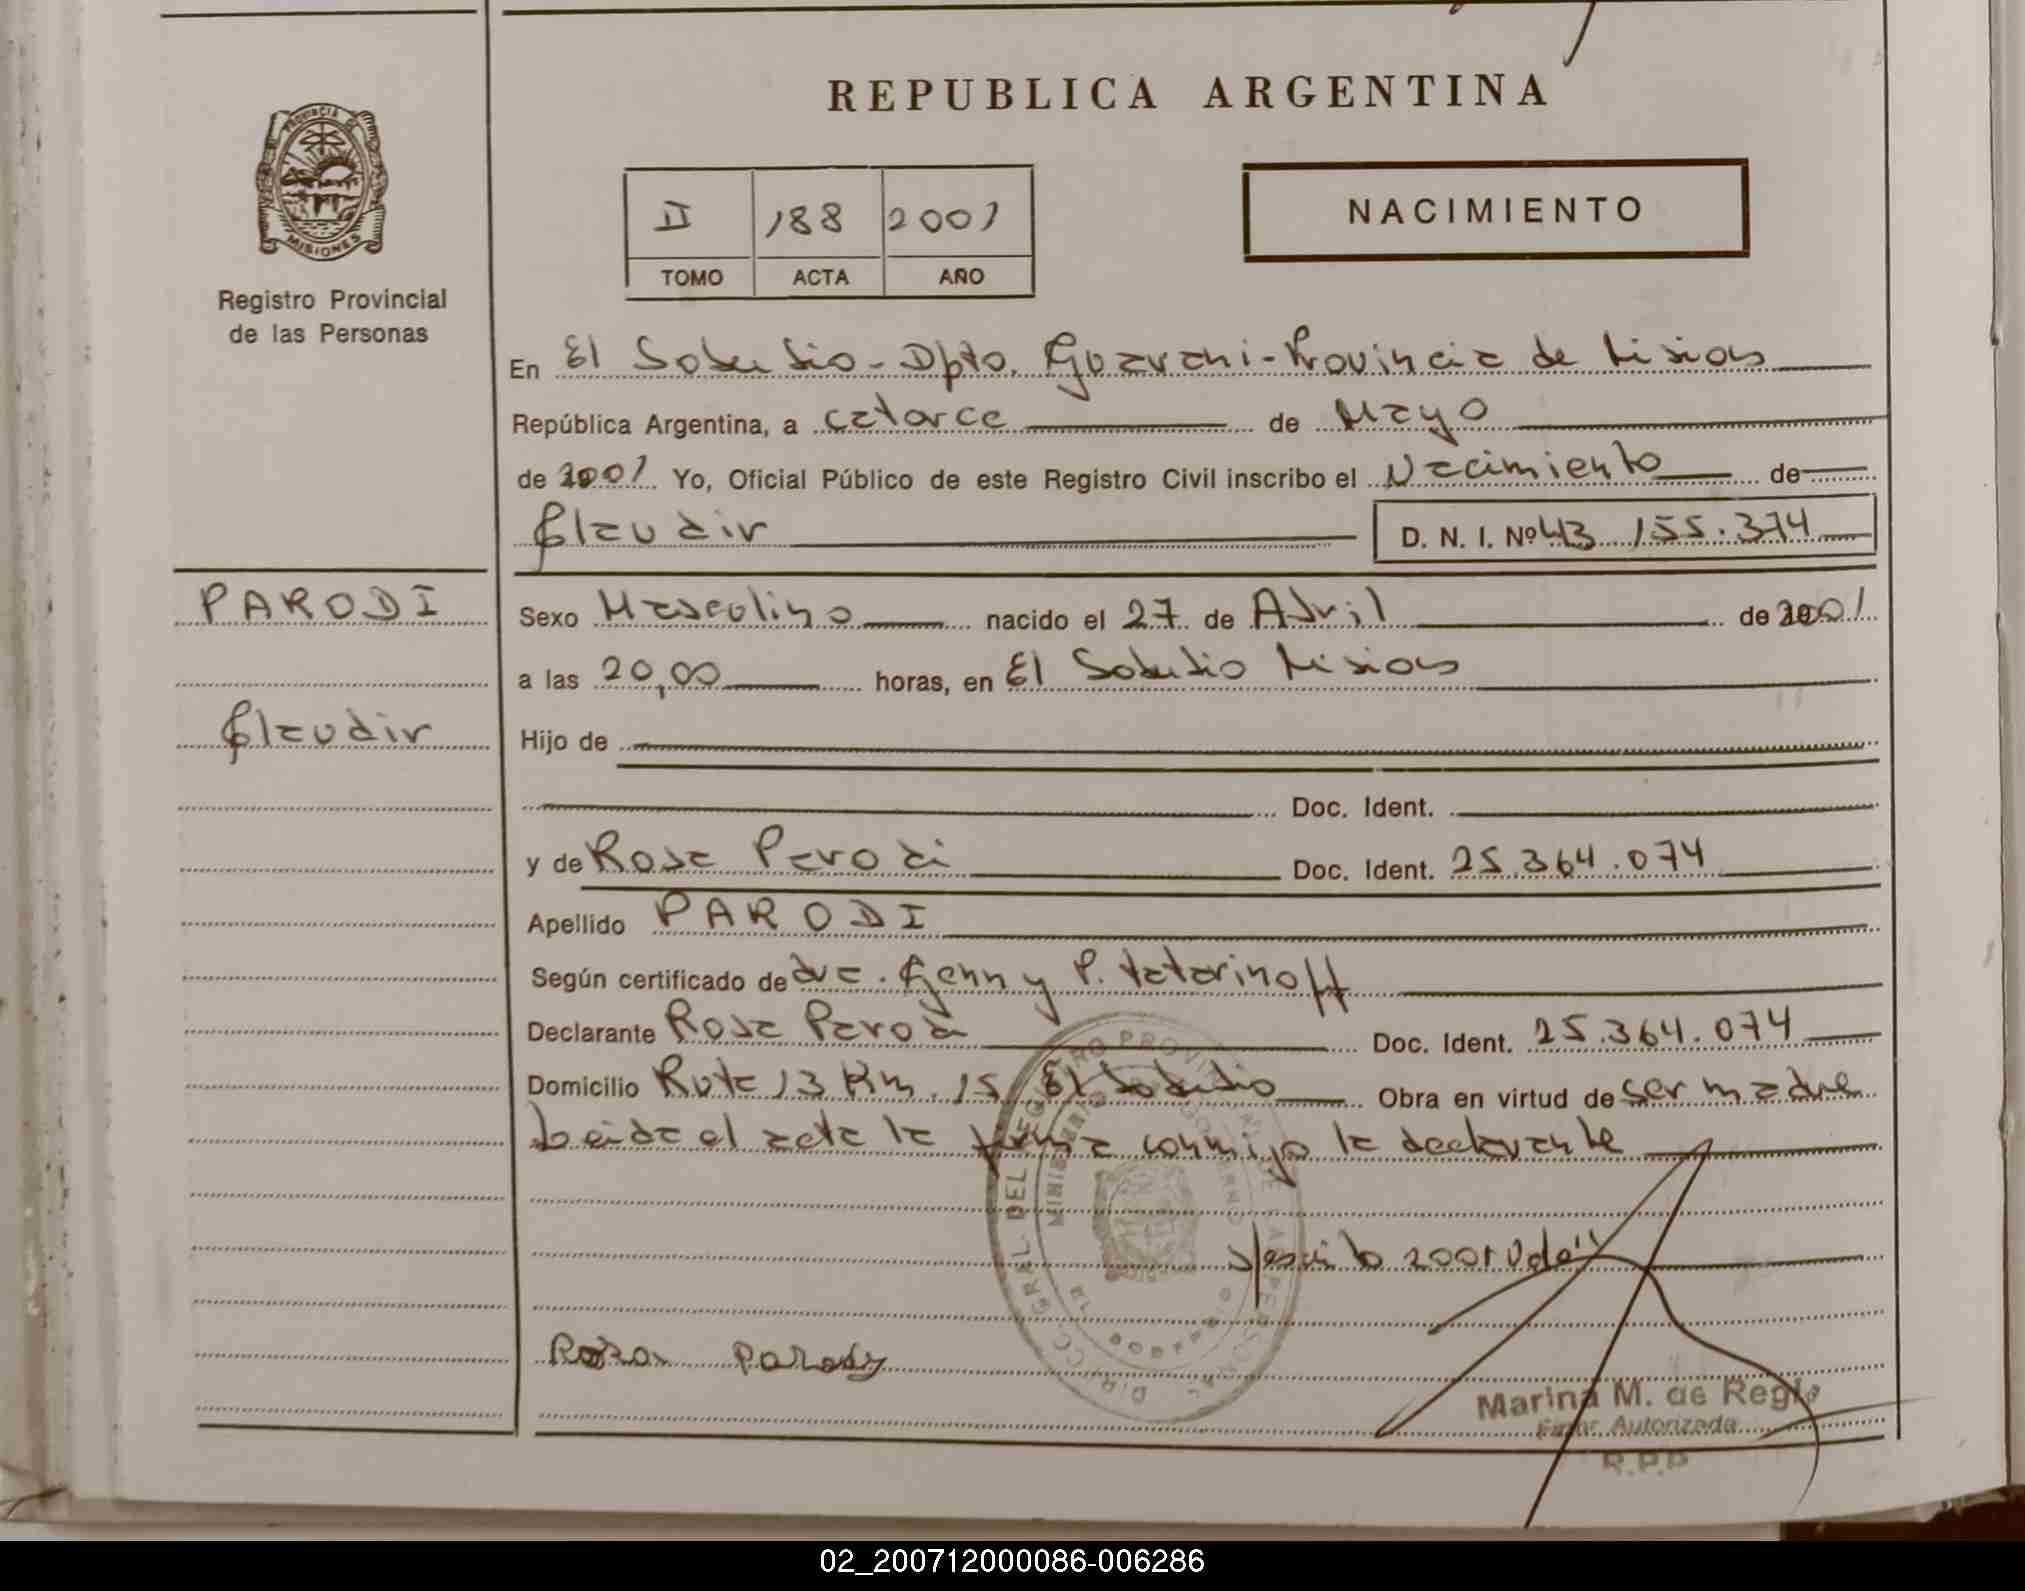 REPUBLICA ARGENTINA
PROVINCIA DE
MISIONES
Registro Provincial
de las Personas
II 188 2001
TOMO ACTA AÑO
NACIMIENTO
En El Soberbio - Dpto. Guarani - Provincia de Misiones
República Argentina, a catorce de Mayo
de 2001 Yo, Oficial Público de este Registro Civil inscribo el Nacimiento de
Claudir D. N. I. Nº 43.155.374
PARODI
Claudir
Sexo Masculino nacido el 27 de Abril de 2001
a las 20,00 horas, en El Soberbio Misiones
Hijo de
Doc. Ident.
y de Rosa Parodi Doc. Ident. 25.364.074
Apellido PARODI
Según certificado de dra. Genny P. Tatarinoff
Declarante Rosa Parodi Doc. Ident. 25.364.074
Domicilio Ruta 13 Km. 15 El Soberbio Obra en virtud de ser madre
Leida el acta la firma conmigo la declarante
2001 Vale"
Roza Parody
Marina M. de Regio
Firma Autorizada
R.P.P
02_200712000086-006286